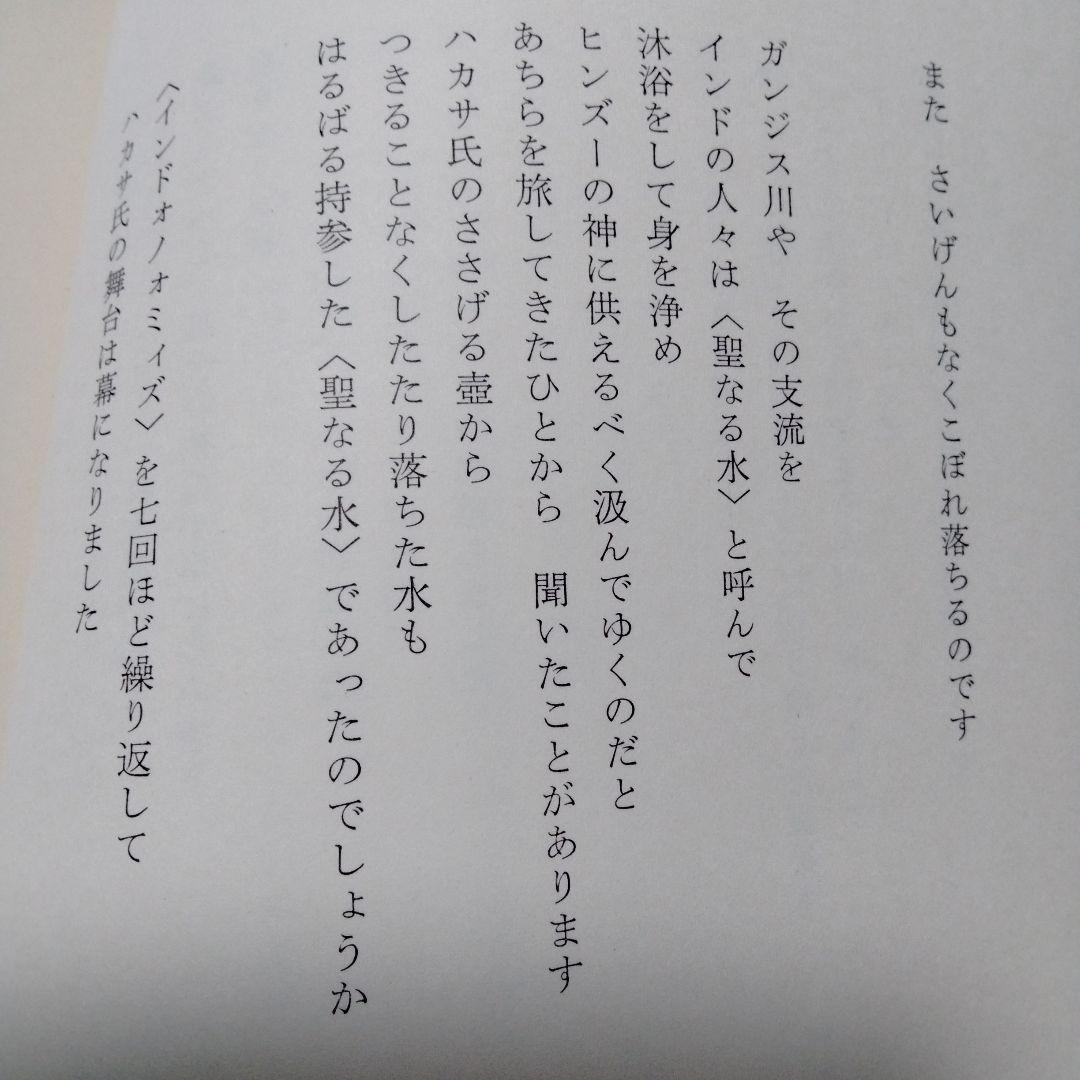 また　さいげんもなくこぼれ落ちるのです
ガンジス川や　その支流を
インドの人々は〈聖なる水〉と呼んで
沐浴をして身を浄め
ヒンズーの神に供えるべく汲んでゆくのだと
あちらを旅してきたひとから　聞いたことがあります
ハカサ氏のささげる壺から
つきることなくしたたり落ちた水も
はるばる持参した〈聖なる水〉であったのでしょうか
〈インドオノオミィズ〉を七回ほど繰り返して
ハカサ氏の舞台は幕になりました